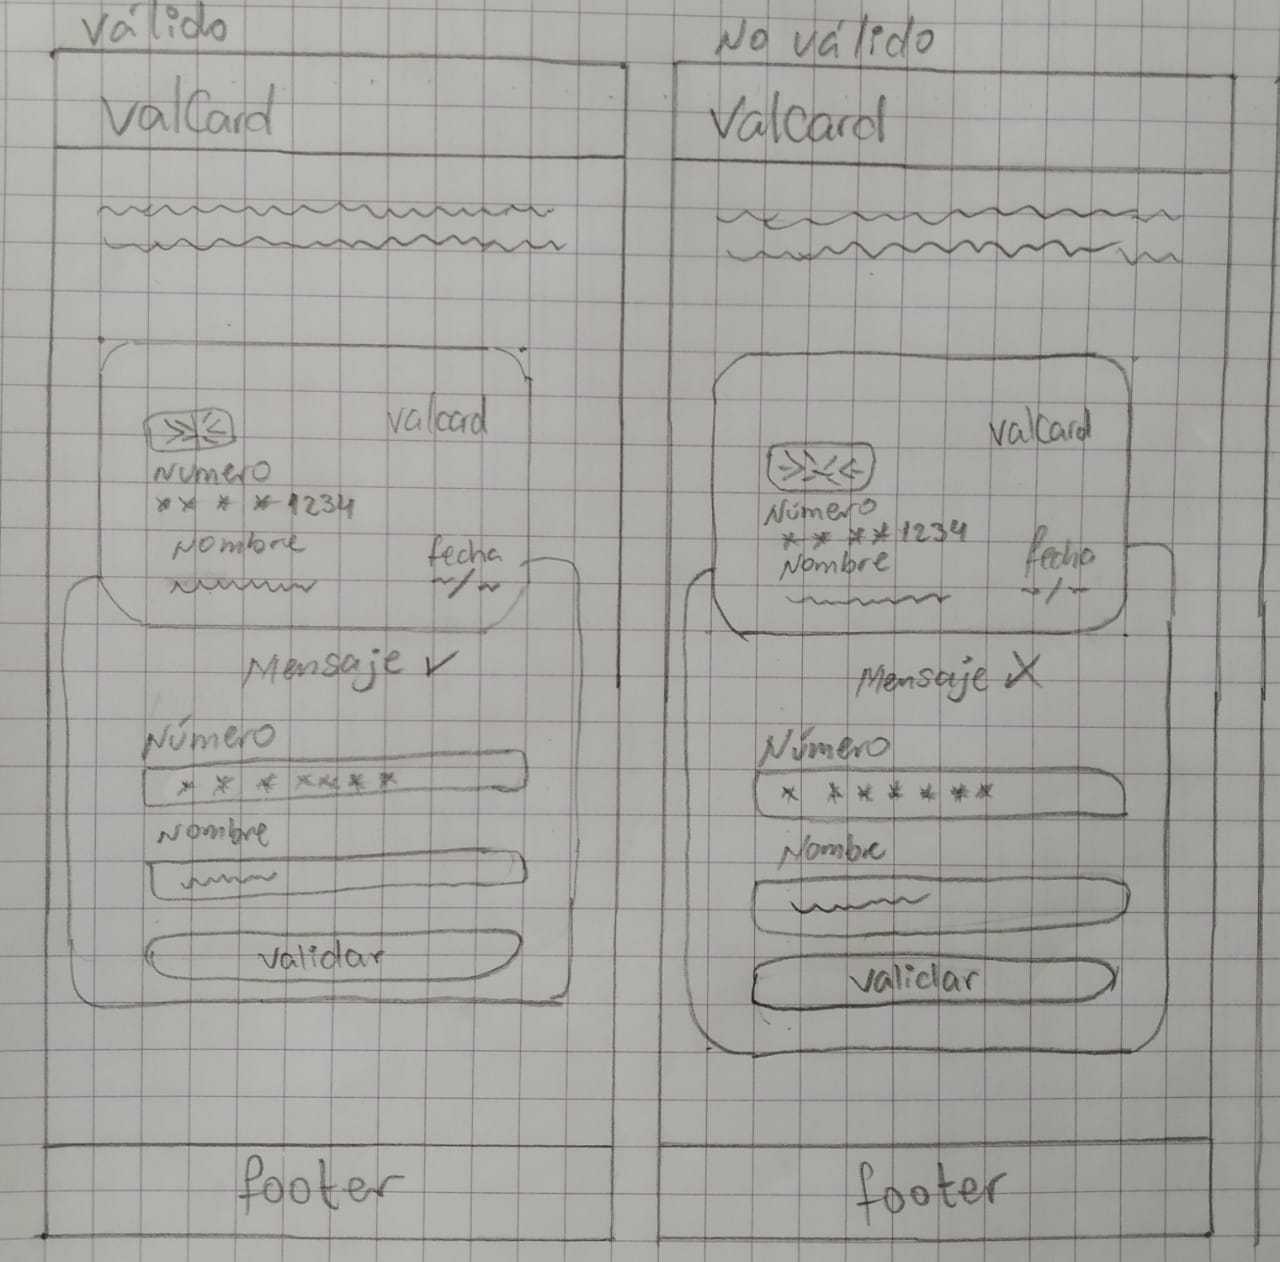 Válido
ValCard
Valcard
Número
* * * * 1234
Nombre
fecha
Mensaje ✓
Número
* * * * * * *
Nombre
Validar
footer
No válido
ValCard
ValCard
Número
* * * * 1234
Nombre
fecha
Mensaje X
Número
* * * * * * *
Nombre
Validar
footer